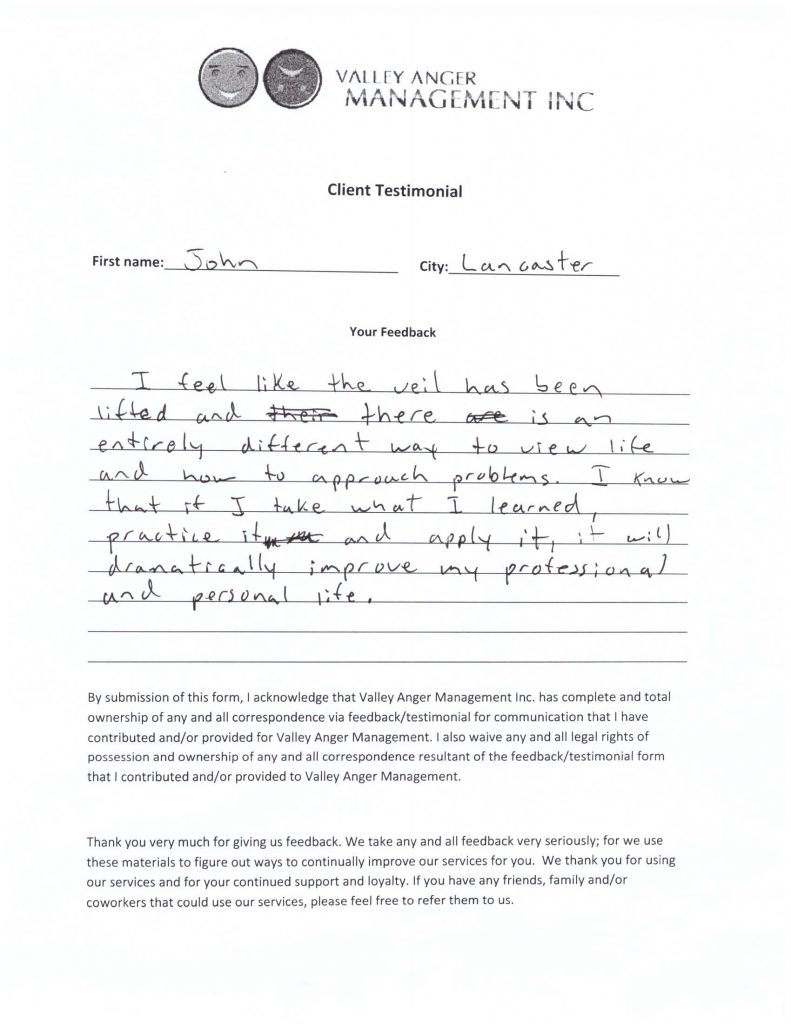 VALLEY ANGER
MANAGEMENT INC
Client Testimonial
First name: John City: Lancaster
Your Feedback
I feel like the veil has been
lifted and their there are is an
entirely different way to view life
and how to approach problems. I know
that if I take what I learned,
practice it and apply it, it will
dramatically improve my professional
and personal life.
By submission of this form, I acknowledge that Valley Anger Management Inc. has complete and total
ownership of any and all correspondence via feedback/testimonial for communication that I have
contributed and/or provided for Valley Anger Management. I also waive any and all legal rights of
possession and ownership of any and all correspondence resultant of the feedback/testimonial form
that I contributed and/or provided to Valley Anger Management.
Thank you very much for giving us feedback. We take any and all feedback very seriously; for we use
these materials to figure out ways to continually improve our services for you. We thank you for using
our services and for your continued support and loyalty. If you have any friends, family and/or
coworkers that could use our services, please feel free to refer them to us.